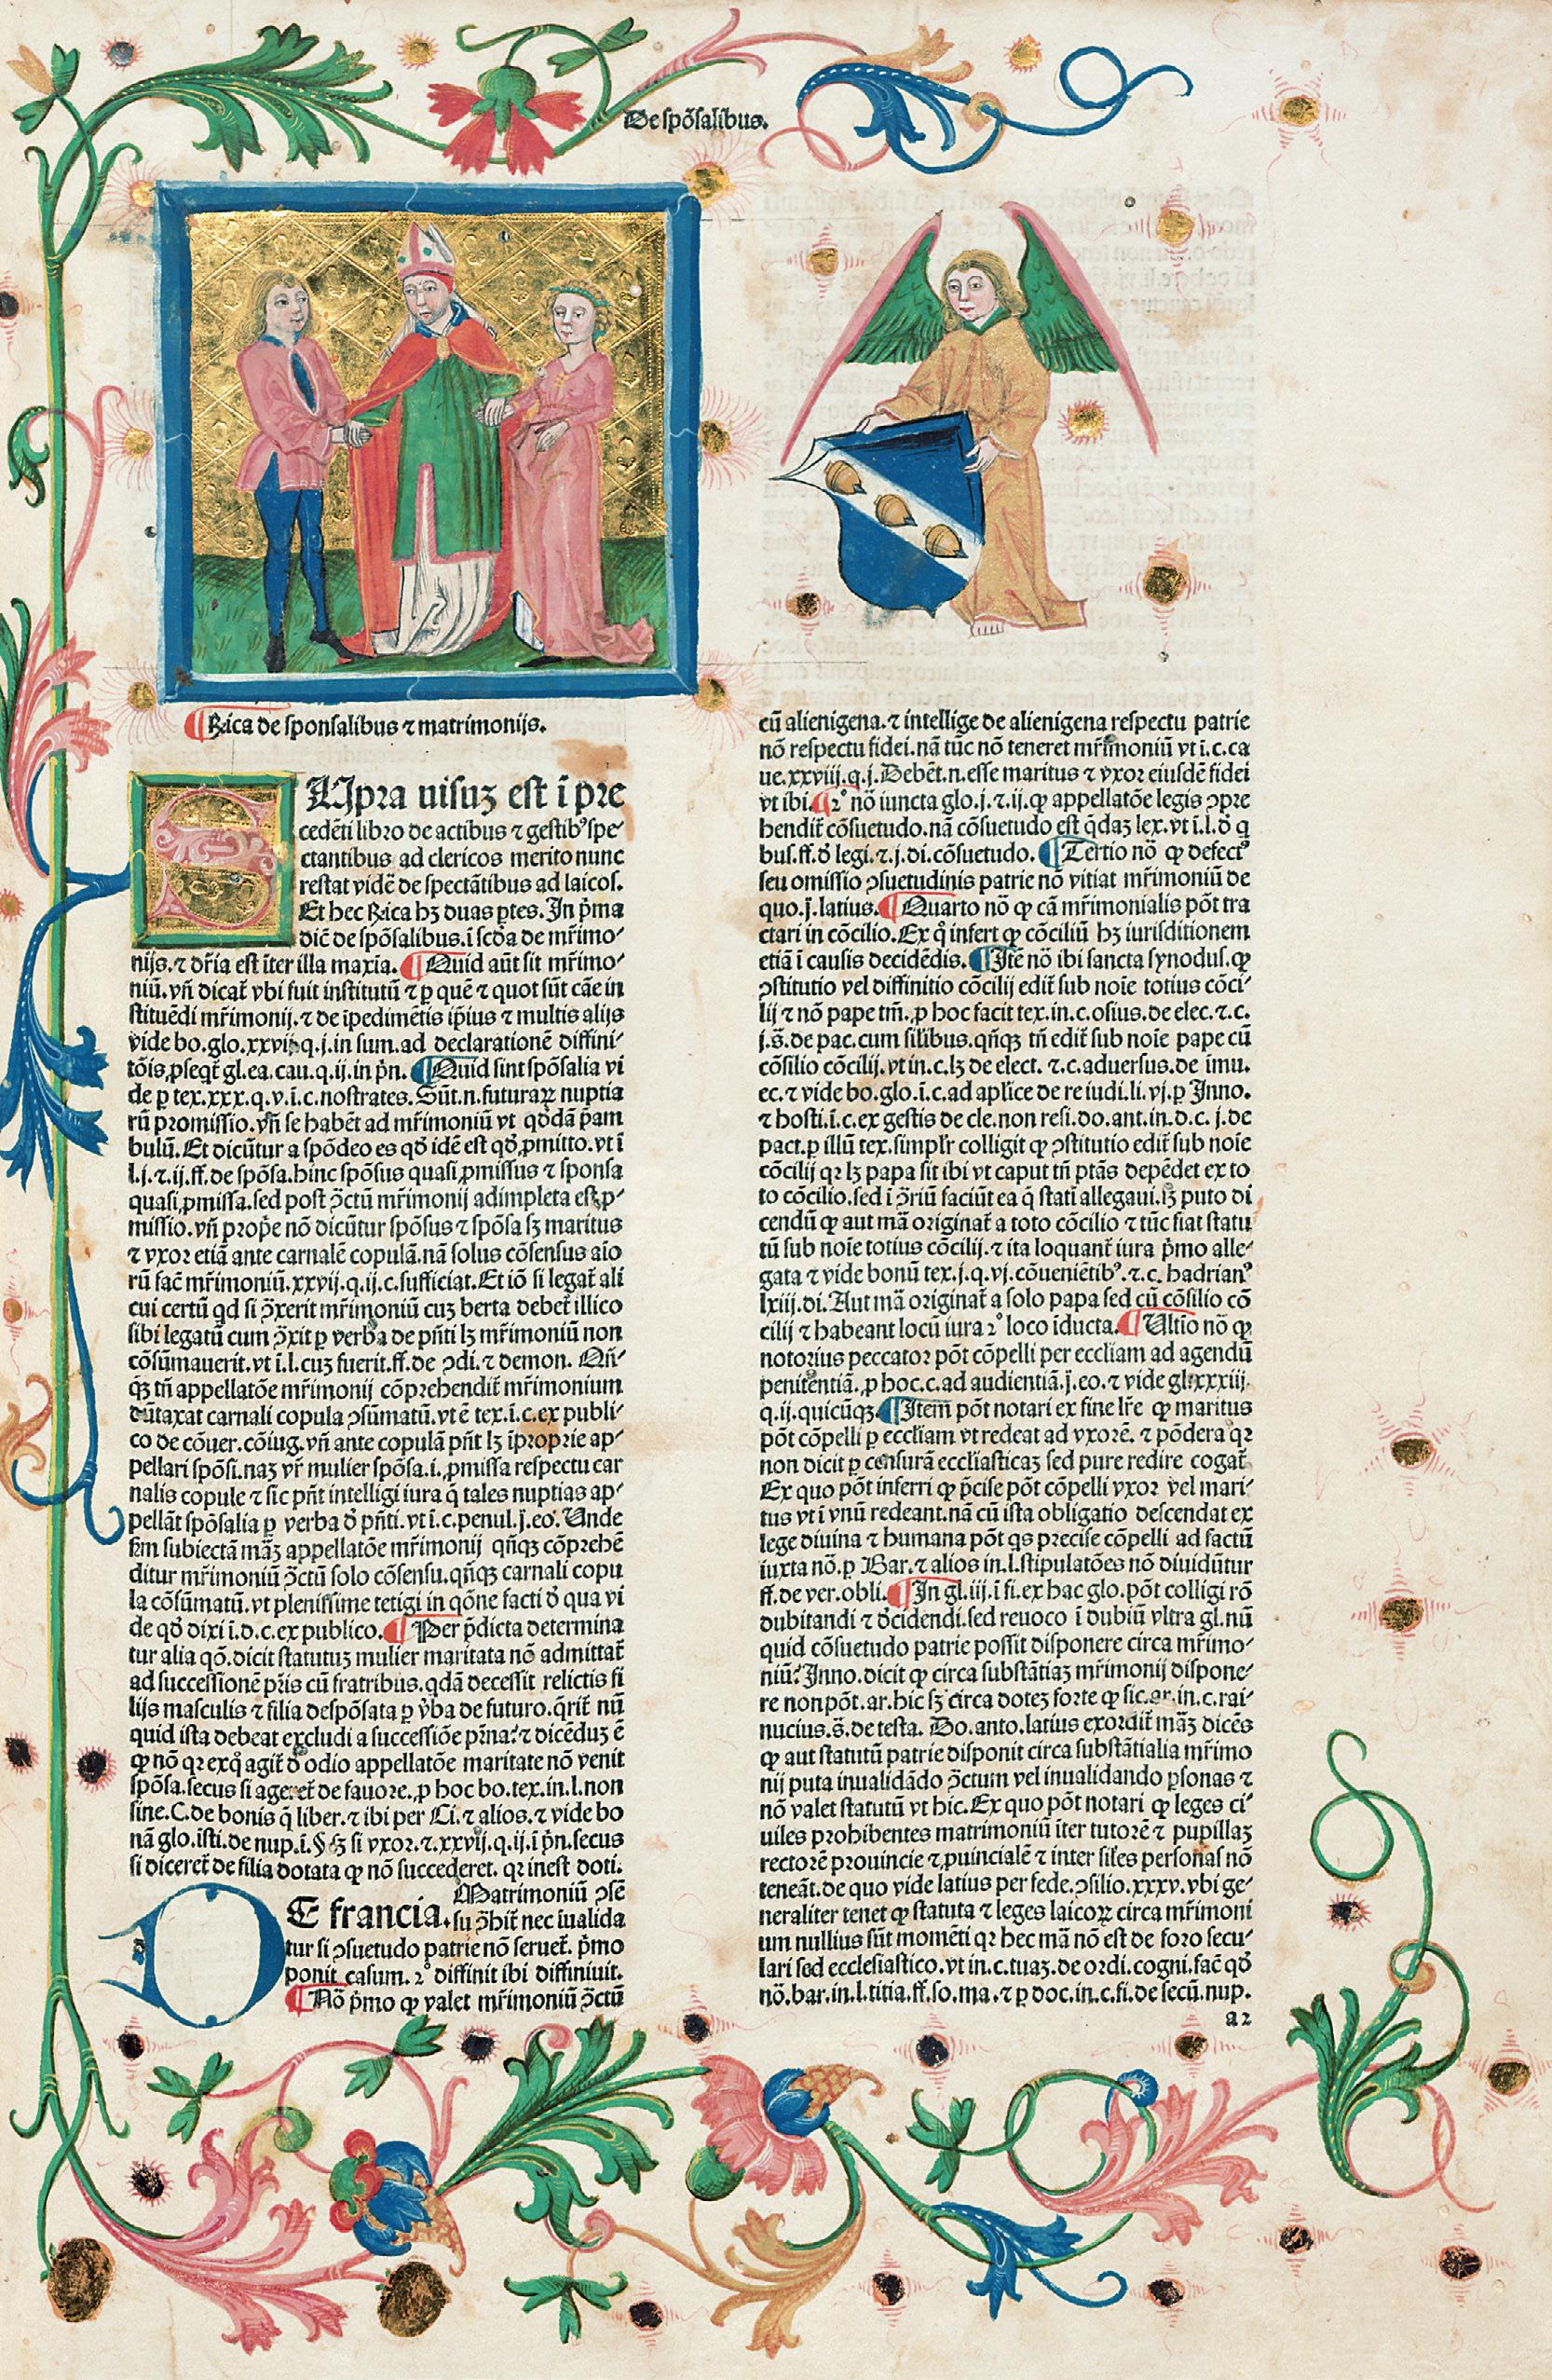 De spõsalibus.
¶ Rıca de sponsalibus ⁊ matrimonijs.
SUpra uisuȝ est ĩ pre
cedẽti libro de actibus ⁊ gestibꝰ spe⸗
ctantibus ad clericos merito nunc
restat vidẽ de spectãtibus ad laicos.
Et hec Rıca hȝ duas ꝑtes. In p̃ma
dicẽ de spõsalibus. ĩ scďa de mr̃imo⸗
nijs. ⁊ dr̃ia est ĩter illa maxĩa. ¶ Quid aũt sit mr̃imo⸗
niũ. vñ dicat̃ vbi fuit institutũ ⁊ ꝑ quẽ ⁊ quot sũt cãe in
stituẽdi mr̃imonij. ⁊ de ĩpedimẽtis ip̃ius ⁊ multis alijs
vide bo. glo. xxvij. q. j. in sum. ad declarationẽ diffini⸗
tõis, ꝓseqt̃ gl. ea. cau. q. ij. in pñ. ¶ Quid sint spõsalia vi
de ꝑ tex. xxx. q. v. ĩ. c. nostrates. Sũt. n. futuraꝝ nuptia
rũ promissio. vñ se habẽt ad mr̃imoniũ vt qďdã p̃am
bulũ. Et dicũtur a spõdeo es qď idẽ est qď ꝓmitto. vt ĩ
l. j. ⁊. ij. ff. de spõsa. hinc spõsus quasi ꝓmissus ⁊ sponsa
quasi ꝓmissa. sed post ꝯ̃ctũ mr̃imonij adimpleta est ꝓ⸗
missio. vñ prop̃e nõ dicũtur spõsus ⁊ spõsa sȝ maritus
⁊ vxor etiã ante carnalẽ copulã. nã solus cõsensus aĩo
rũ facẽ mr̃imoniũ. xxvij. q. ij. c. sufficiat. Et iõ si legat̃ ali
cui certũ qd si ꝯ̃xerit mr̃imoniũ cuȝ berta debet̃ illico
sibi legatũ cum ꝯ̃xit ꝑ verba de pñti lȝ mr̃imoniũ non
cõsũmauerit. vt ĩ. l. cuȝ fuerit. ff. de ꝯdi. ⁊ demon. Qñ⸗
qȝ tñ appellatõe mr̃imonij cõprehendit̃ mr̃imonium
dũtaxat carnali copula ꝯsũmatũ. vt ẽ tex. ĩ. c. ex publi⸗
co de cõuer. cõiug. vñ ante copulã pñt lȝ ĩproprie ap⸗
pellari spõsi. naȝ vr̃ mulier spõsa. i. ꝓmissa respectu car
nalis copule ⁊ sic pñt intelligi iura q̃ tales nuptias ap⸗
pellãt spõsalia ꝑ verba ď pñti. vt ĩ. c. penul. j. eo. Unde
ẞm subiectã mãȝ appellatõe mr̃imonij qñqȝ cõprehẽ
ditur mr̃imoniũ ꝯ̃ctũ solo cõsensu. qñqȝ carnali copu
la cõsũmatũ. vt plenissime tetigi in qõne facti ď qua vi
de qď dixi ĩ. d. c. ex publico. ¶ Per p̃dicta determina
tur alia qõ. dicit statutuȝ mulier maritata nõ admittat̃
ad successionẽ pr̃is cũ fratribus. qdã decessit relictis fi
lijs masculis ⁊ filia despõsata ꝑ v̉ba de futuro. q̃rit̃ nũ
quid ista debeat excludi a successiõe pr̃na: ⁊ dicẽduȝ ẽ
ꝙ nõ qꝛ exq̊ agit̃ ď odio appellatõe maritate nõ venit
spõsa. secus si ageret̃ de fauore. ꝓ hoc bo. tex. in. l. non
sine. C. de bonis q̃ liber. ⁊ ibi per Ci. ⁊ alios. ⁊ vide bo
nã glo. ĩsti. de nup. ĩ. § ẞȝ si vxor. ⁊. xxvij. q. ij. ĩ pñ. secus
si diceret̃ de filia dotata ꝙ nõ succederet. qꝛ inest doti.
Matrimoniũ ꝯsẽ
DE francia. su ꝯ̃hit̃ nec ĩualida
tur si ꝯsuetudo patrie nõ seruet̃. p̃mo
ponit casum. 2º diffinit ibi diffiniuit.
¶ Nõ p̃mo ꝙ valet mr̃imoniũ ꝯ̃ctũ
cũ alienigena. ⁊ intellige de alienigena respectu patrie
nõ respectu fidei. nã tũc nõ teneret mr̃imoniũ vt ĩ. c. ca
ue. xxviij. q. j. Debẽt. n. esse maritus ⁊ vxor eiusdẽ fidei
vt ibi. ¶ 2º nõ iuncta glo. j. ⁊. ij. ꝙ appellatõe legis ꝯpre
hendit̃ cõsuetudo. nã cõsuetudo est q̃daȝ lex. vt ĩ. l. ď q
bus. ff. ď legi. ⁊. j. di. cõsuetudo. ¶ Tertio nõ ꝙ defectꝰ
seu omissio ꝯsuetudinis patrie nõ vitiat mr̃imoniũ de
quo. j. latius. ¶ Quarto nõ ꝙ cã mr̃imonialis põt tra
ctari in cõcilio. Ex q̊ infert ꝙ cõciliũ hȝ iurisditionem
etiã ĩ causis decidẽdis. ¶ Itẽ nõ ibi sancta synodus. ꝙ
ꝯstitutio vel diffinitio cõcilij edit̃ sub noĩe totius cõci⸗
lij ⁊ nõ pape tm̃. ꝓ hoc facit tex. in. c. osius. de elec. ⁊. c.
j. s̃. de pac. cum silibus. qñqȝ tñ edit̃ sub noĩe pape cũ
cõsilio cõcilij. vt in. c. lȝ de elect. ⁊. c. aduersus. de imu.
ec. ⁊ vide bo. glo. ĩ. c. ad ap̃lice de re iudi. li. vj. ꝑ Inno.
⁊ hosti. ĩ. c. ex gestis de cle. non resi. do. ant. in. d. c. j. de
pact. ꝑ illũ tex. simplr̃ colligit ꝙ ꝯstitutio edit̃ sub noĩe
cõcilij qꝛ lȝ papa sit ibi vt caput tñ ptãs depẽdet ex to
to cõcilio. sed ĩ ꝯ̃riũ faciũt ea q̃ statĩ allegaui. lȝ puto di
cendũ ꝙ aut mã originat̃ a toto cõcilio ⁊ tũc fiat statu
tũ sub noĩe totius cõcilij. ⁊ ita loquant̃ iura p̃mo alle⸗
gata ⁊ vide bonũ tex. j. q. vj. cõueniẽtibꝰ. ⁊. c. hadrianꝰ
lxiij. di. Aut mã originat̃ a solo papa sed cũ cõsilio cõ
cilij ⁊ habeant locũ iura 2º loco ĩducta. ¶ Ultĩo nõ ꝙ
notorius peccator põt cõpelli per eccliam ad agendũ
penitentiã. ꝓ hoc. c. ad audientiã. j. eo. ⁊ vide gl. xxxiij.
q. ij. quicũqȝ. ¶ Item̃ põt notari ex fine lr̃e ꝙ maritus
põt cõpelli ꝑ eccliam vt redeat ad vxorẽ. ⁊ põdera qꝛ
non dicit ꝑ censurã eccliasticaȝ sed pure redire cogat̃.
Ex quo põt inferri ꝙ p̃cise põt cõpelli vxor vel mari⸗
tus vt ĩ vnũ redeant. nã cũ ista obligatio descendat ex
lege diuina ⁊ humana põt qs precise cõpelli ad factũ
iuxta nõ. ꝑ Bar. ⁊ alios in. l. stipulatões nõ diuidũtur
ff. de ver. obli. ¶ In gl. iij. ĩ fi. ex hac glo. põt colligi rõ
dubitandi ⁊ ďcidendi. sed reuoco ĩ dubiũ vltra gl. nũ
quid cõsuetudo patrie possit disponere circa mr̃imo⸗
niũ: Inno. dicit ꝙ circa substãtiaȝ mr̃imonij dispone⸗
re non põt. ar. hic sȝ circa doteȝ forte ꝙ sic. ar. in. c. rai⸗
nucius. s̃. de testa. Do. anto. latius exordit̃ mãȝ dicẽs
ꝙ aut statutũ patrie disponit circa substãtialia mr̃imo
nij puta inualidãdo ꝯ̃ctum vel inualidando ꝑsonas ⁊
nõ valet statutũ vt hic. Ex quo põt notari ꝙ leges ci⸗
uiles prohibentes matrimoniũ ĩter tutorẽ ⁊ pupillaȝ
rectorẽ prouincie ⁊ ꝓuincialẽ ⁊ inter siles personas nõ
teneãt. de quo vide latius per fede. ꝯsilio. xxxv. vbi ge⸗
neraliter tenet ꝙ statuta ⁊ leges laicoꝝ circa mr̃imoni
um nullius sũt momẽti qꝛ hec mã nõ est de foro secu⸗
lari sed ecclesiastico. vt in. c. tuaȝ. de ordi. cogni. facẽ qď
nõ. bar. in. l. titia. ff. so. ma. ⁊ ꝑ doc. in. c. fi. de secũ. nup.
a2